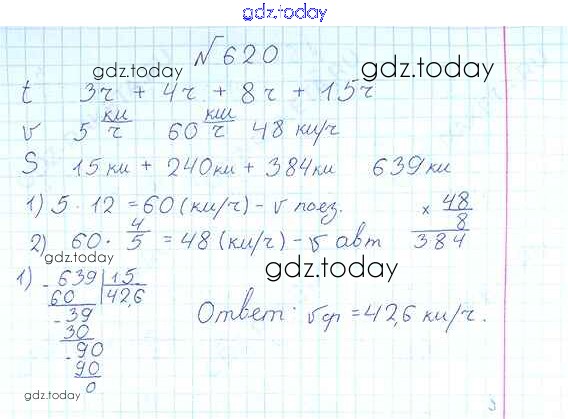 gdz.today
№620
gdz.today gdz.today
t 3ч + 4ч + 8ч + 15ч
v 5 км/ч 60 км/ч 48 км/ч
S 15км + 240км + 384км 639км
1) 5 · 12 = 60 (км/ч) - v поез.
2) 60 · 4/5 = 48 (км/ч) - v авт
× 48
8
384
gdz.today
gdz.today
1) - 639 | 15
60 | 42,6
- 39
30
- 90
90
0
Ответ: vср = 42,6 км/ч.
gdz.today
gdz.today